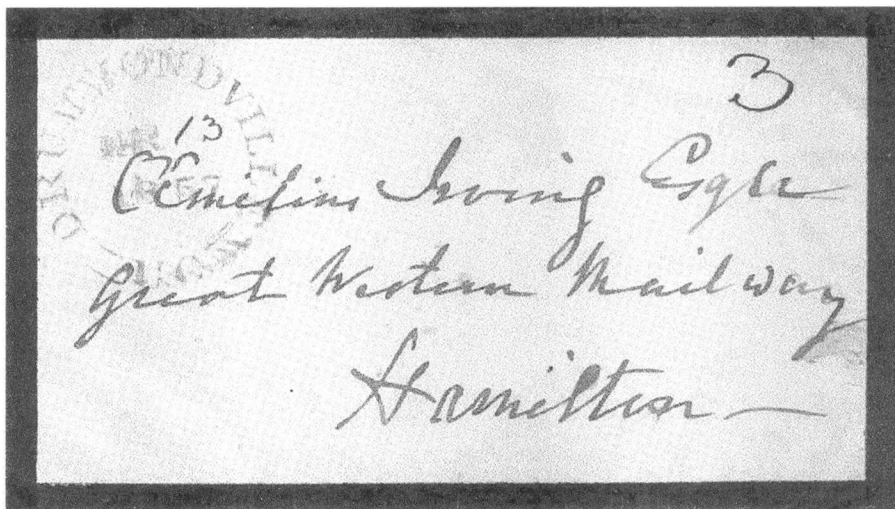 3
DRUMMONDVILLE WEST
13
Æmilius Irving Esqre
Great Western Railway
Hamilton